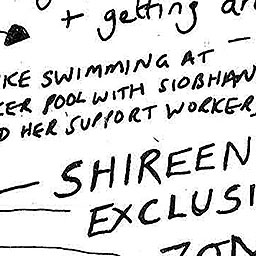 + getting
KE SWIMMING AT
ER POOL WITH SIOBHAN
D HER SUPPORT WORKER
SHIREEN
EXCLUSI
ZON